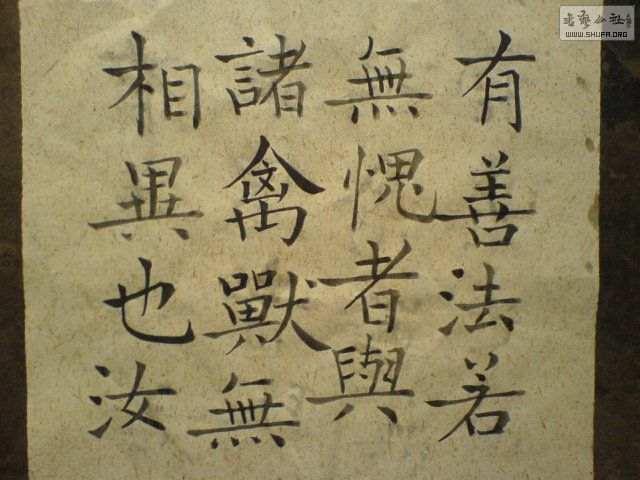 有善法若
無愧者與
諸禽獸無
相異也汝
WWW.SHUFA.ORG